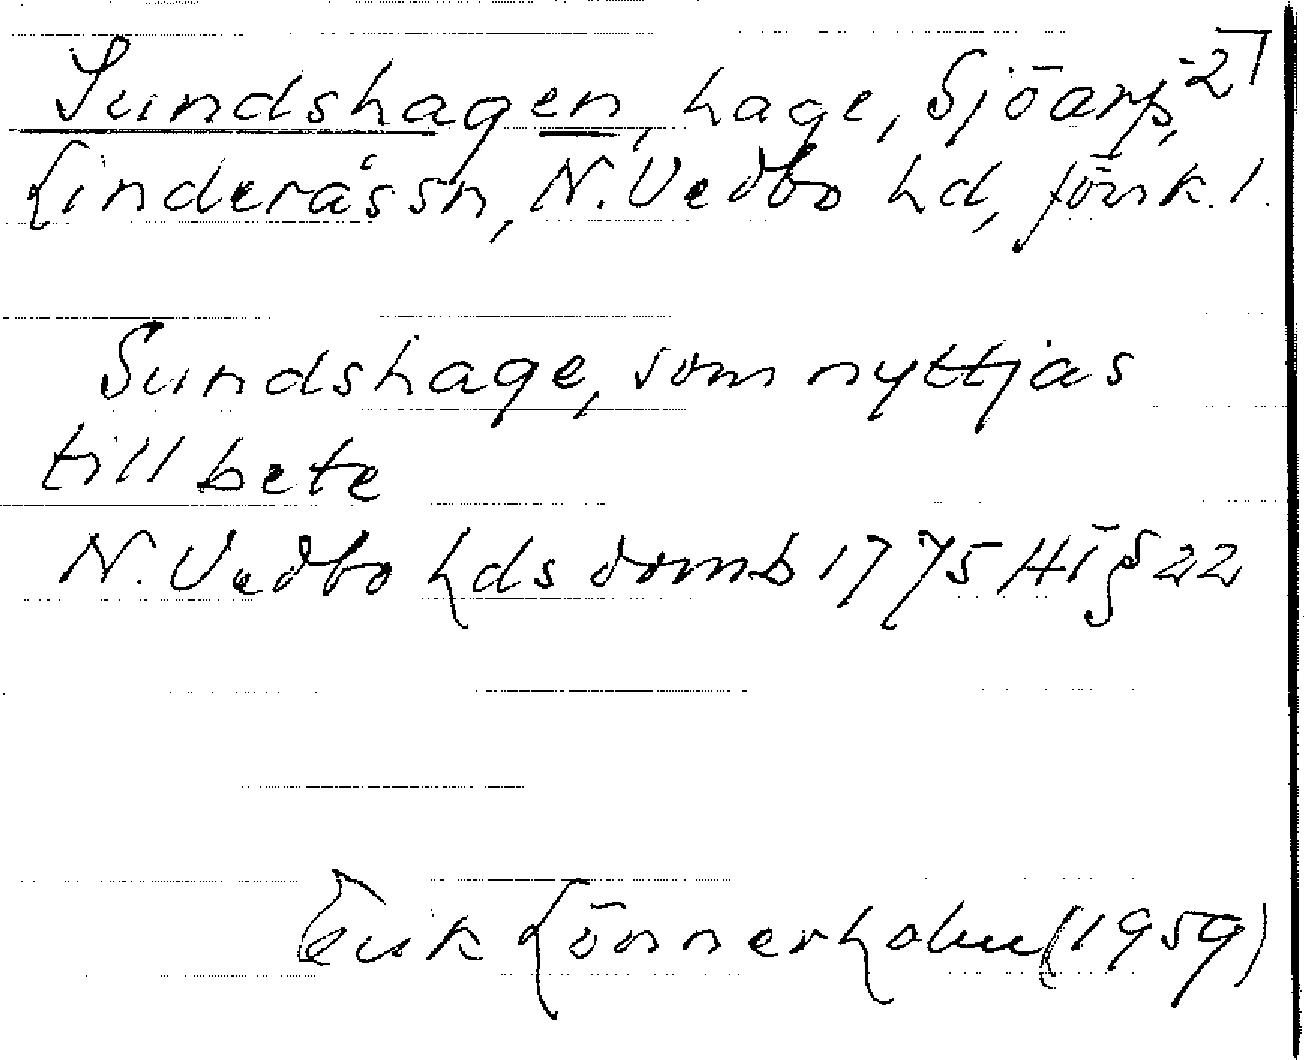 Sundshagen, hage, Sjöarp, 27
Linderås sn, N. Vedbo hd, Jönk. l.
Sundshage, som nyttjas
till bete
N. Vedbo hds domb 1775 HT § 22
Erik Lönnerholm (1959)